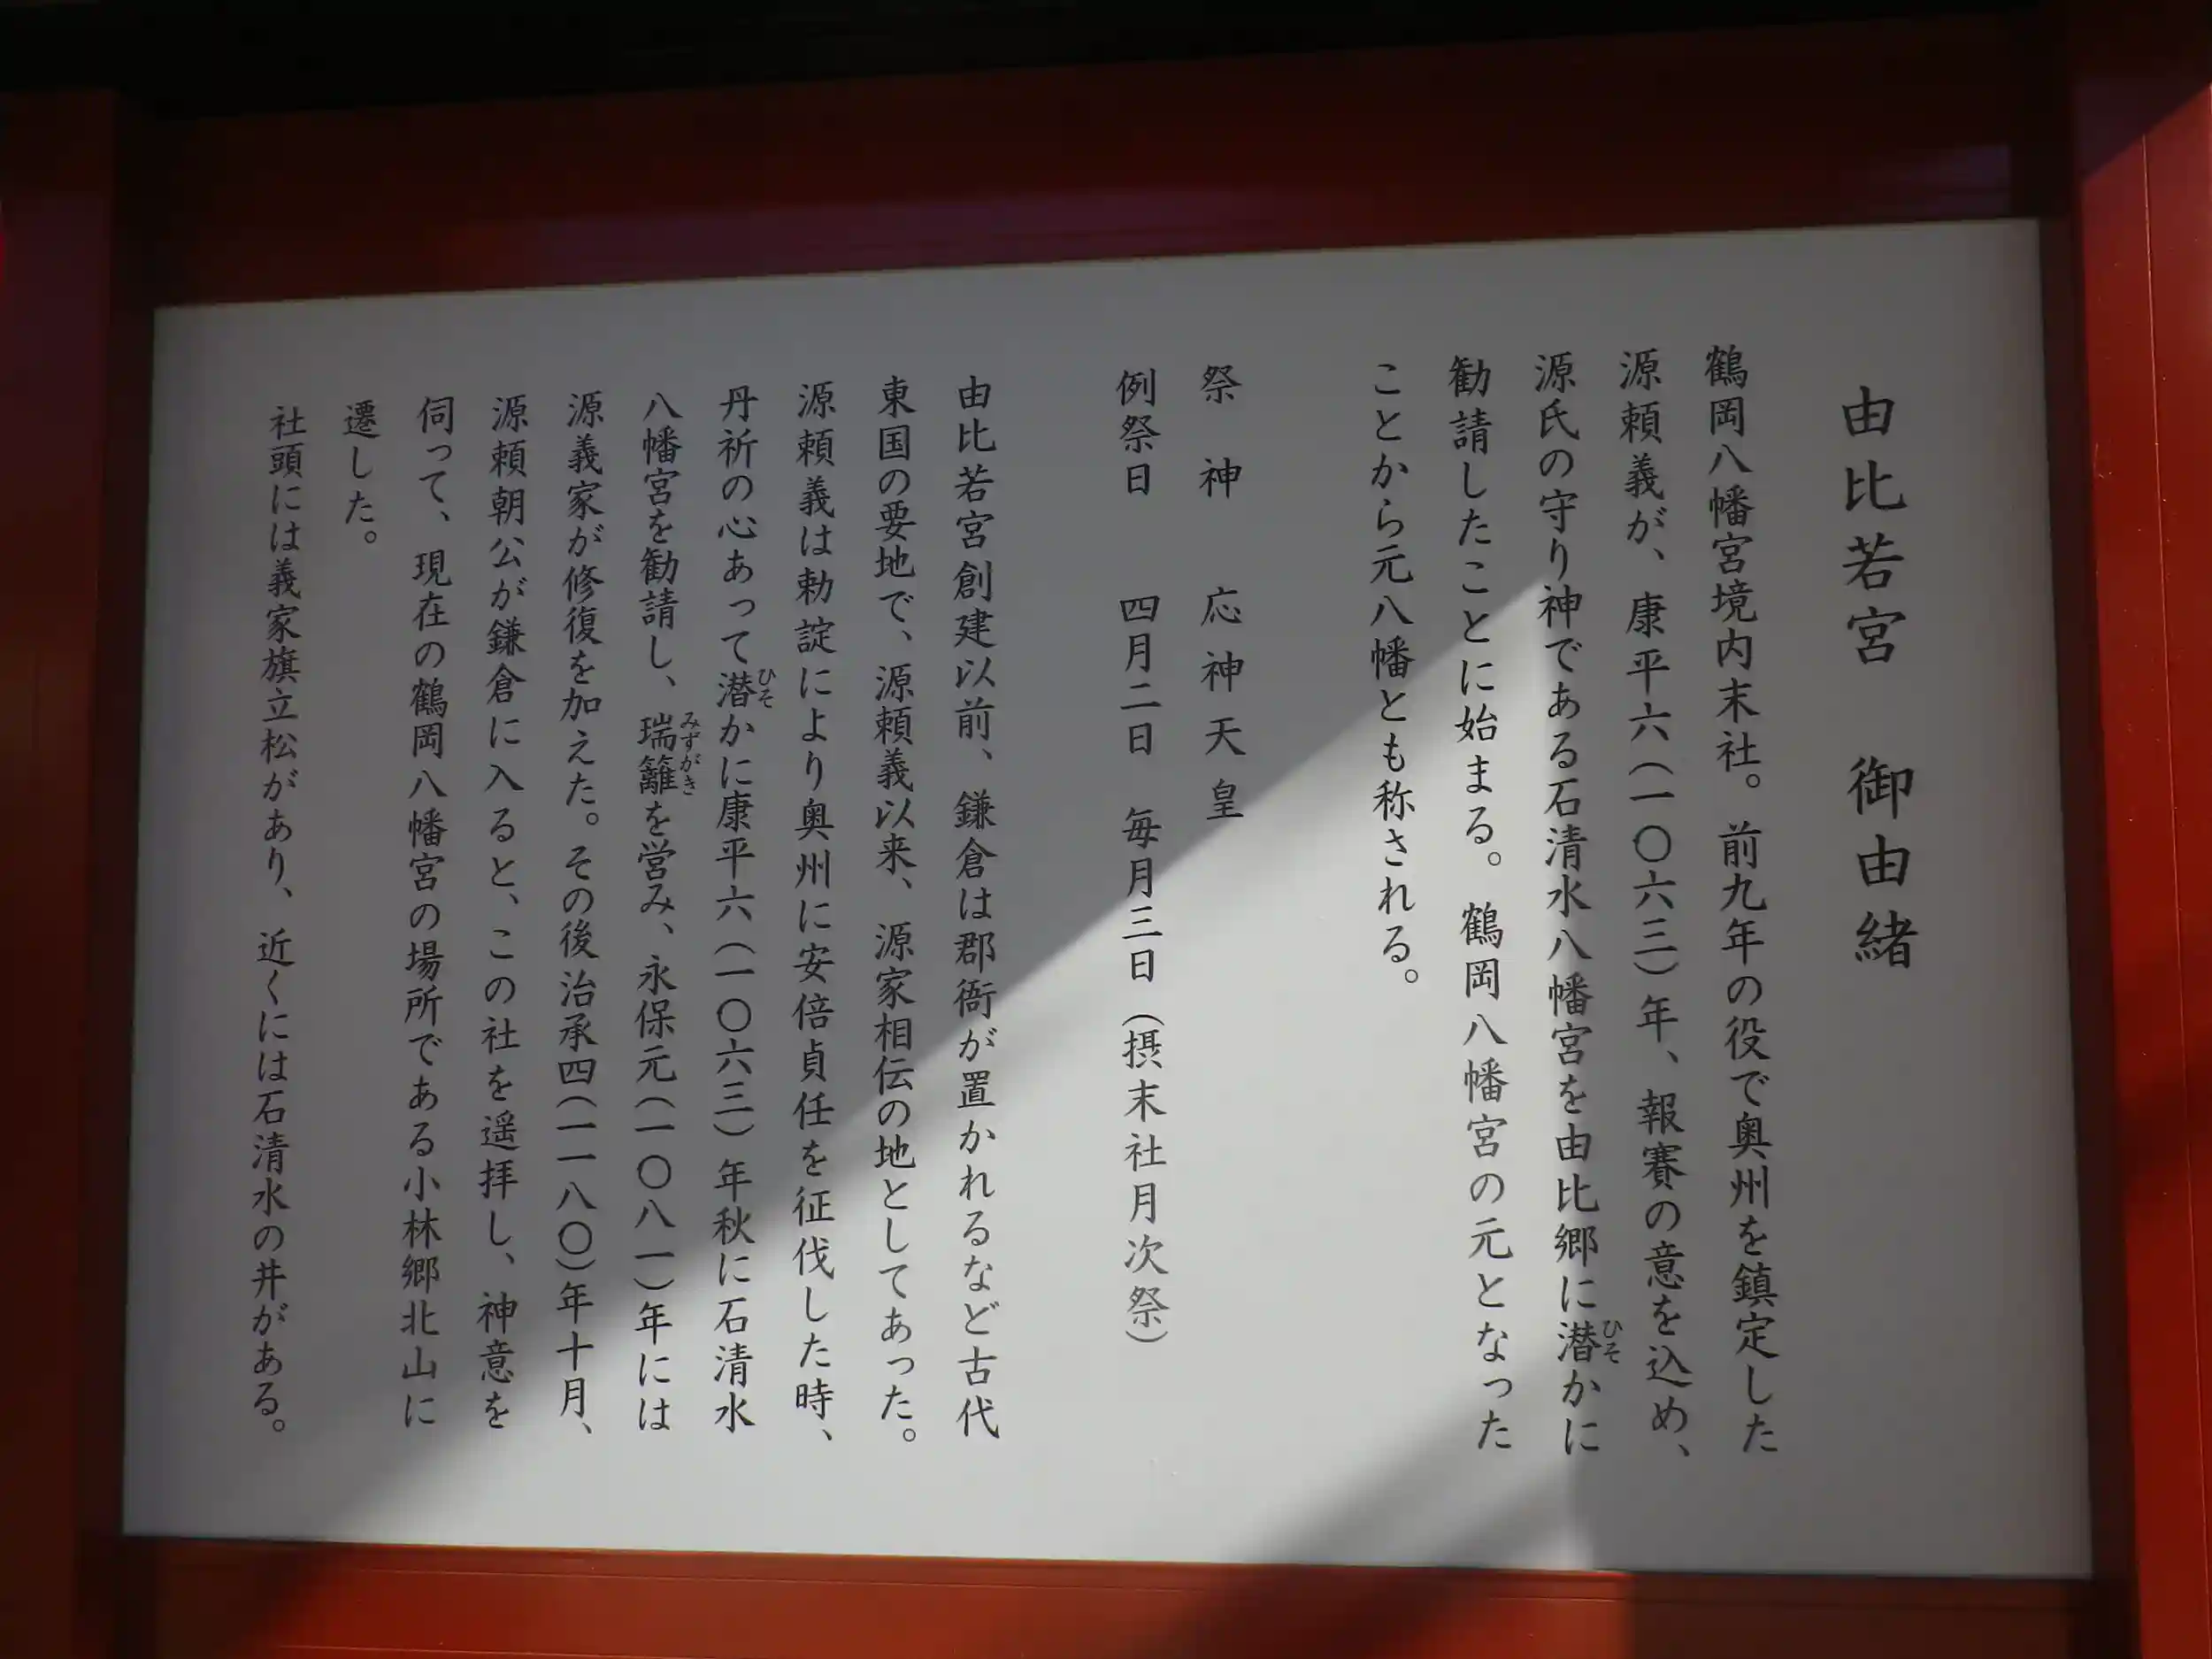 由比若宮　御由緒
鶴岡八幡宮境内末社。前九年の役で奥州を鎮定した
源頼義が、康平六（一〇六三）年、報賽の意を込め、
源氏の守り神である石清水八幡宮を由比郷に潜かに
ひそ
勧請したことに始まる。鶴岡八幡宮の元となった
ことから元八幡とも称される。
祭　神　応神天皇
例祭日　四月二日　毎月三日（摂末社月次祭）
由比若宮創建以前、鎌倉は郡衙が置かれるなど古代
東国の要地で、源頼義以来、源家相伝の地としてあった。
源頼義は勅諚により奥州に安倍貞任を征伐した時、
丹祈の心あって潜かに康平六（一〇六三）年秋に石清水
ひそ
八幡宮を勧請し、瑞籬を営み、永保元（一〇八一）年には
みずがき
源義家が修復を加えた。その後治承四（一一八〇）年十月、
源頼朝公が鎌倉に入ると、この社を遥拝し、神意を
伺って、現在の鶴岡八幡宮の場所である小林郷北山に
遷した。
社頭には義家旗立松があり、近くには石清水の井がある。